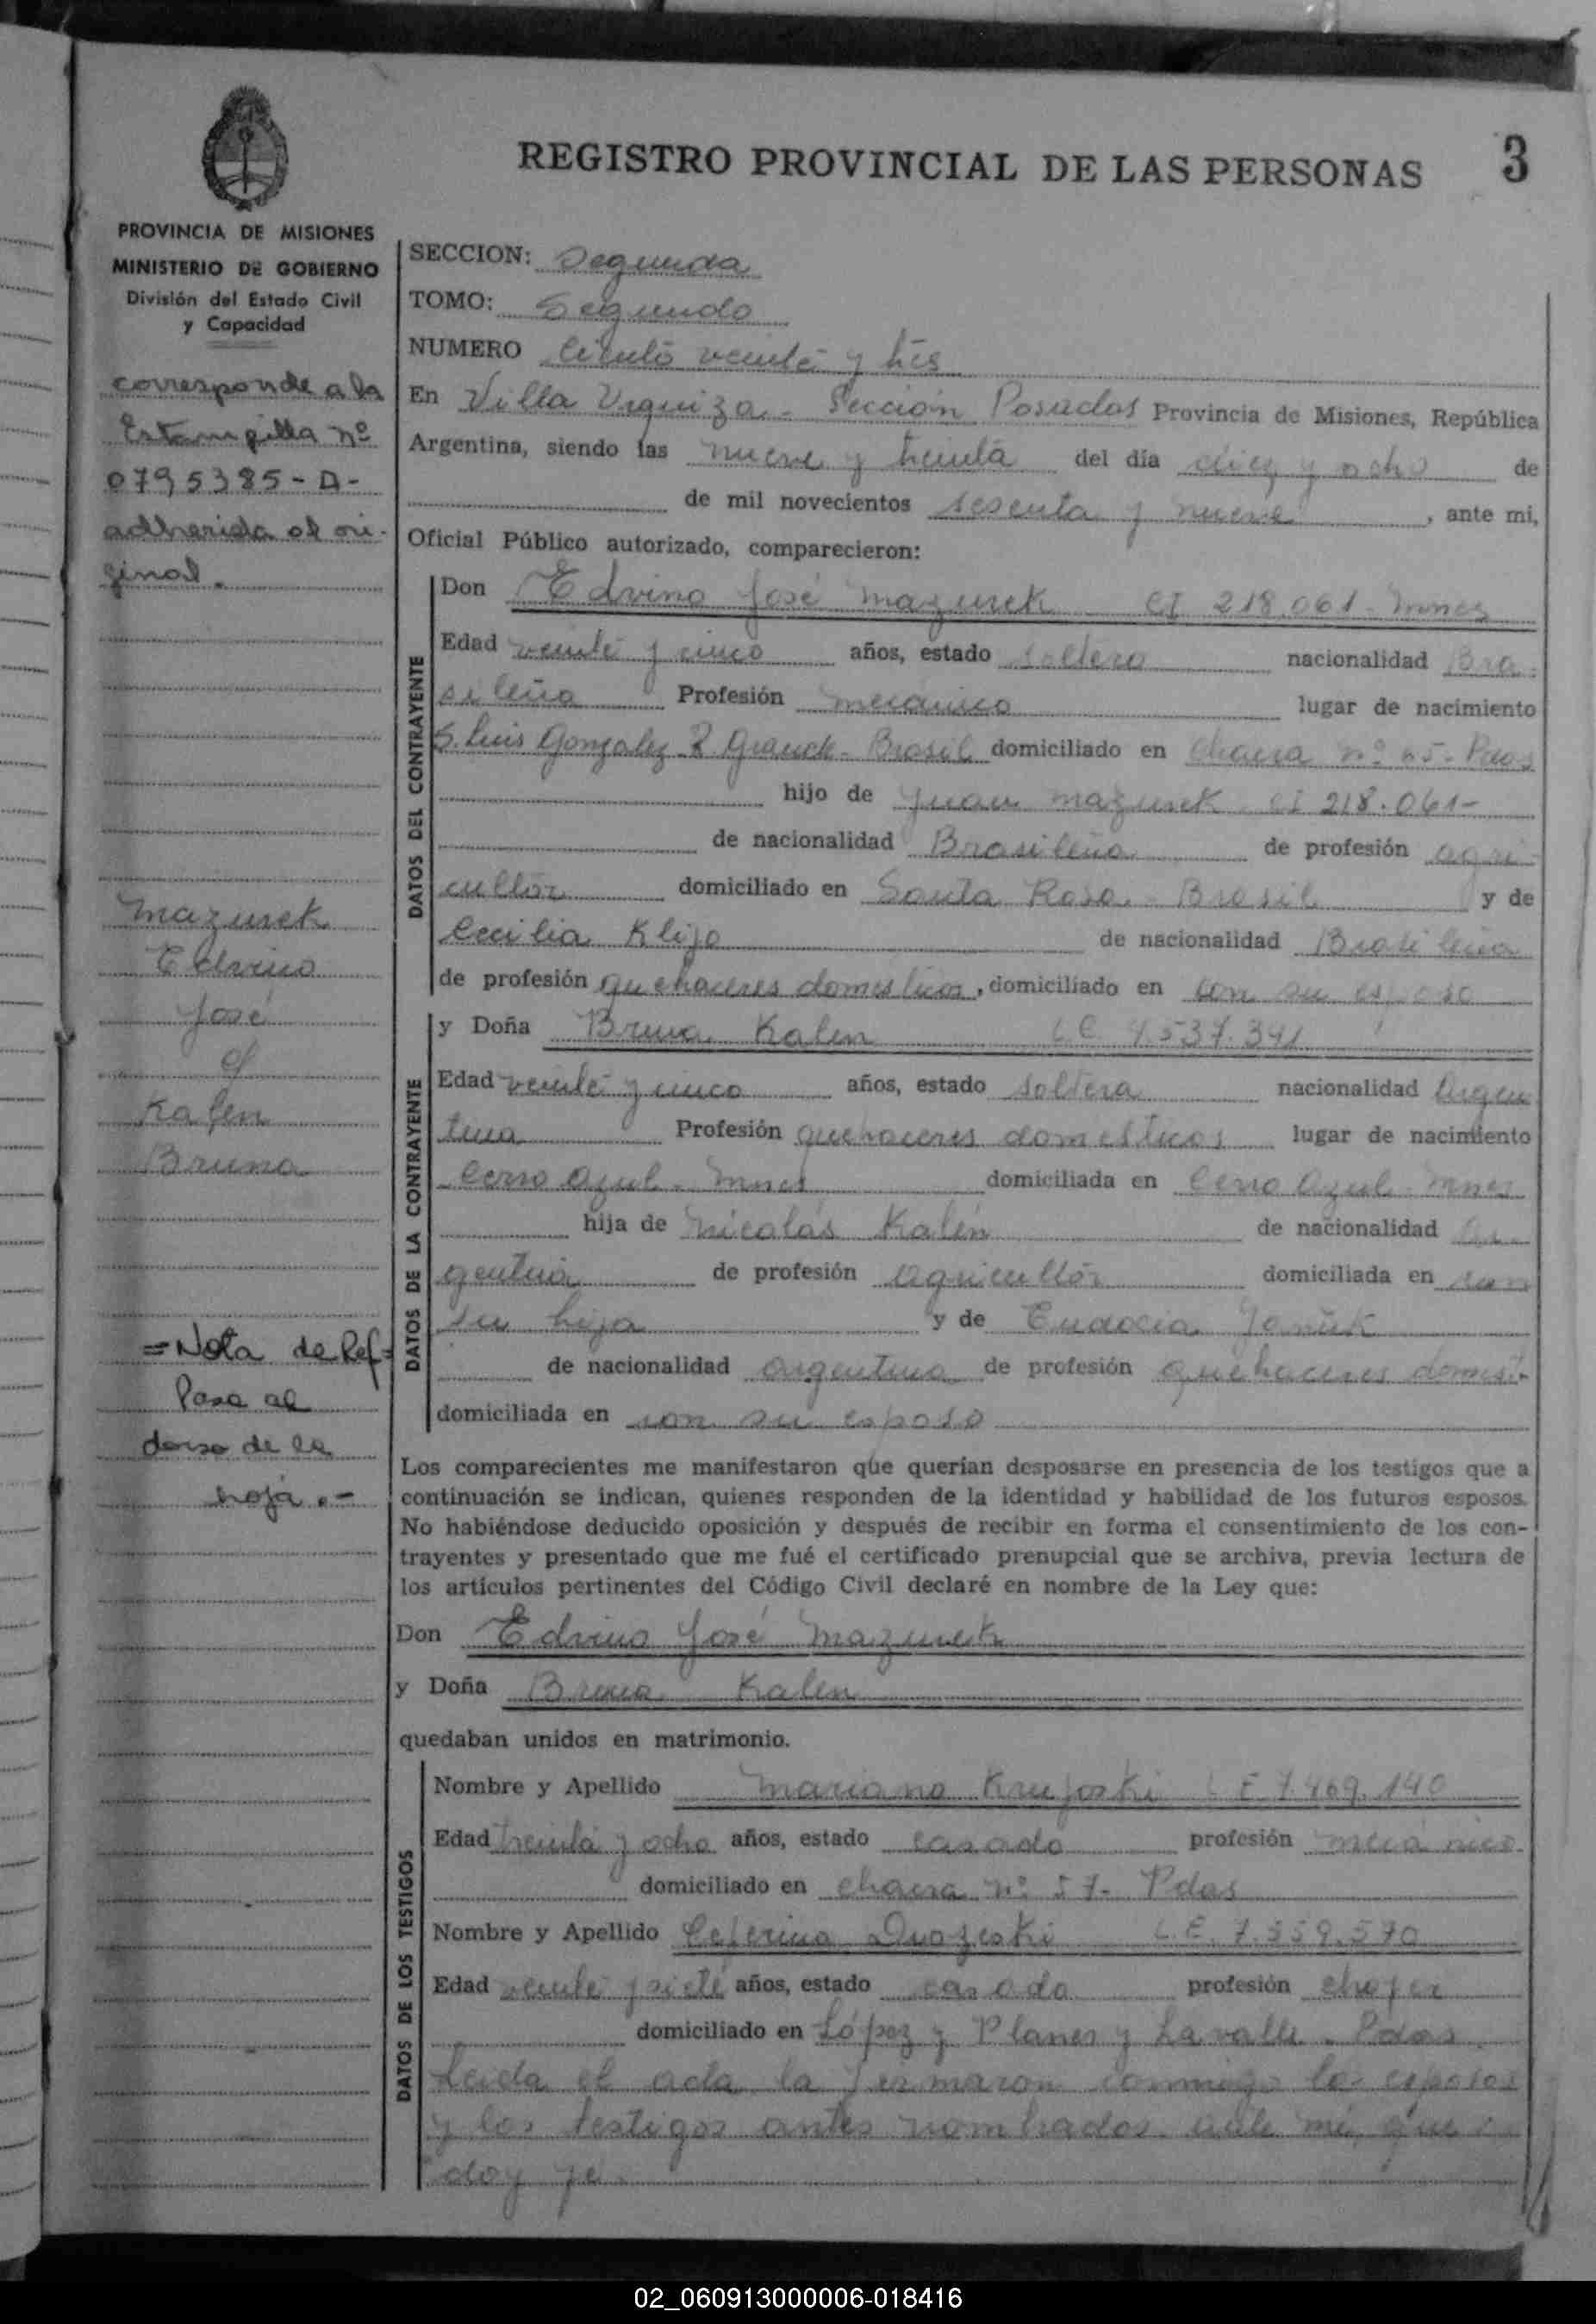 REGISTRO PROVINCIAL DE LAS PERSONAS 3
PROVINCIA DE MISIONES
MINISTERIO DE GOBIERNO
División del Estado Civil
y Capacidad
corresponde a la
Estampilla nº
0795385-A-
adherida al ori-
ginal.
Mazurek
Edvino
José
c/
Kalen
Bruna
=Nota de Ref=
Pasa al
dorso de la
hoja.-
SECCION: Segunda
TOMO: Segundo
NUMERO Ciento veinte y tres
En Villa Urquiza - Sección Posadas Provincia de Misiones, República
Argentina, siendo las nueve y treinta del día diez y ocho de
de mil novecientos sesenta y nueve, ante mi,
Oficial Público autorizado, comparecieron:
DATOS DEL CONTRAYENTE
Don Edvino José Mazurek CI 218.061 - Mnes
Edad veinte y cinco años, estado soltero nacionalidad Bra-
sileña Profesión mecánico lugar de nacimiento
S. Luis Gonzalez R. - Brasil domiciliado en chacra nº - Pdas
hijo de Juan Mazurek CI 218.061-
de nacionalidad Brasileña de profesión agri-
cultor domiciliado en Santa Rosa - Brasil y de
Cecilia Klijo de nacionalidad Brasileña
de profesión quehaceres domesticos, domiciliado en con su esposo
DATOS DE LA CONTRAYENTE
y Doña Bruna Kalen L.C. 4.537.341
Edad veinte y cinco años, estado soltera nacionalidad Argen
tina Profesión quehaceres domesticos lugar de nacimiento
Cerro Azul - Mnes domiciliada en Cerro Azul - Mnes
hija de Nicolás Kalen de nacionalidad Ar-
gentina de profesión agricultor domiciliada en con
su hija y de Eudocia
de nacionalidad argentina de profesión quehaceres domést.
domiciliada en con su esposo
Los comparecientes me manifestaron que querían desposarse en presencia de los testigos que a
continuación se indican, quienes responden de la identidad y habilidad de los futuros esposos.
No habiéndose deducido oposición y después de recibir en forma el consentimiento de los con-
trayentes y presentado que me fué el certificado prenupcial que se archiva, previa lectura de
los artículos pertinentes del Código Civil declaré en nombre de la Ley que:
Don Edvino José Mazurek
y Doña Bruna Kalen
quedaban unidos en matrimonio.
DATOS DE LOS TESTIGOS
Nombre y Apellido Mariano L E 7.469.140
Edad treinta y ocho años, estado casado profesión mecánico
domiciliado en chacra nº 57 - Pdas
Nombre y Apellido Ceferino L.E. 7.559.570
Edad veinte y siete años, estado casado profesión chofer
domiciliado en López y Planes y Lavalle - Pdas
Leida el acta la firmaron conmigo los esposos
y los testigos antes nombrados ante mí, que
doy fe.
02_060913000006-018416